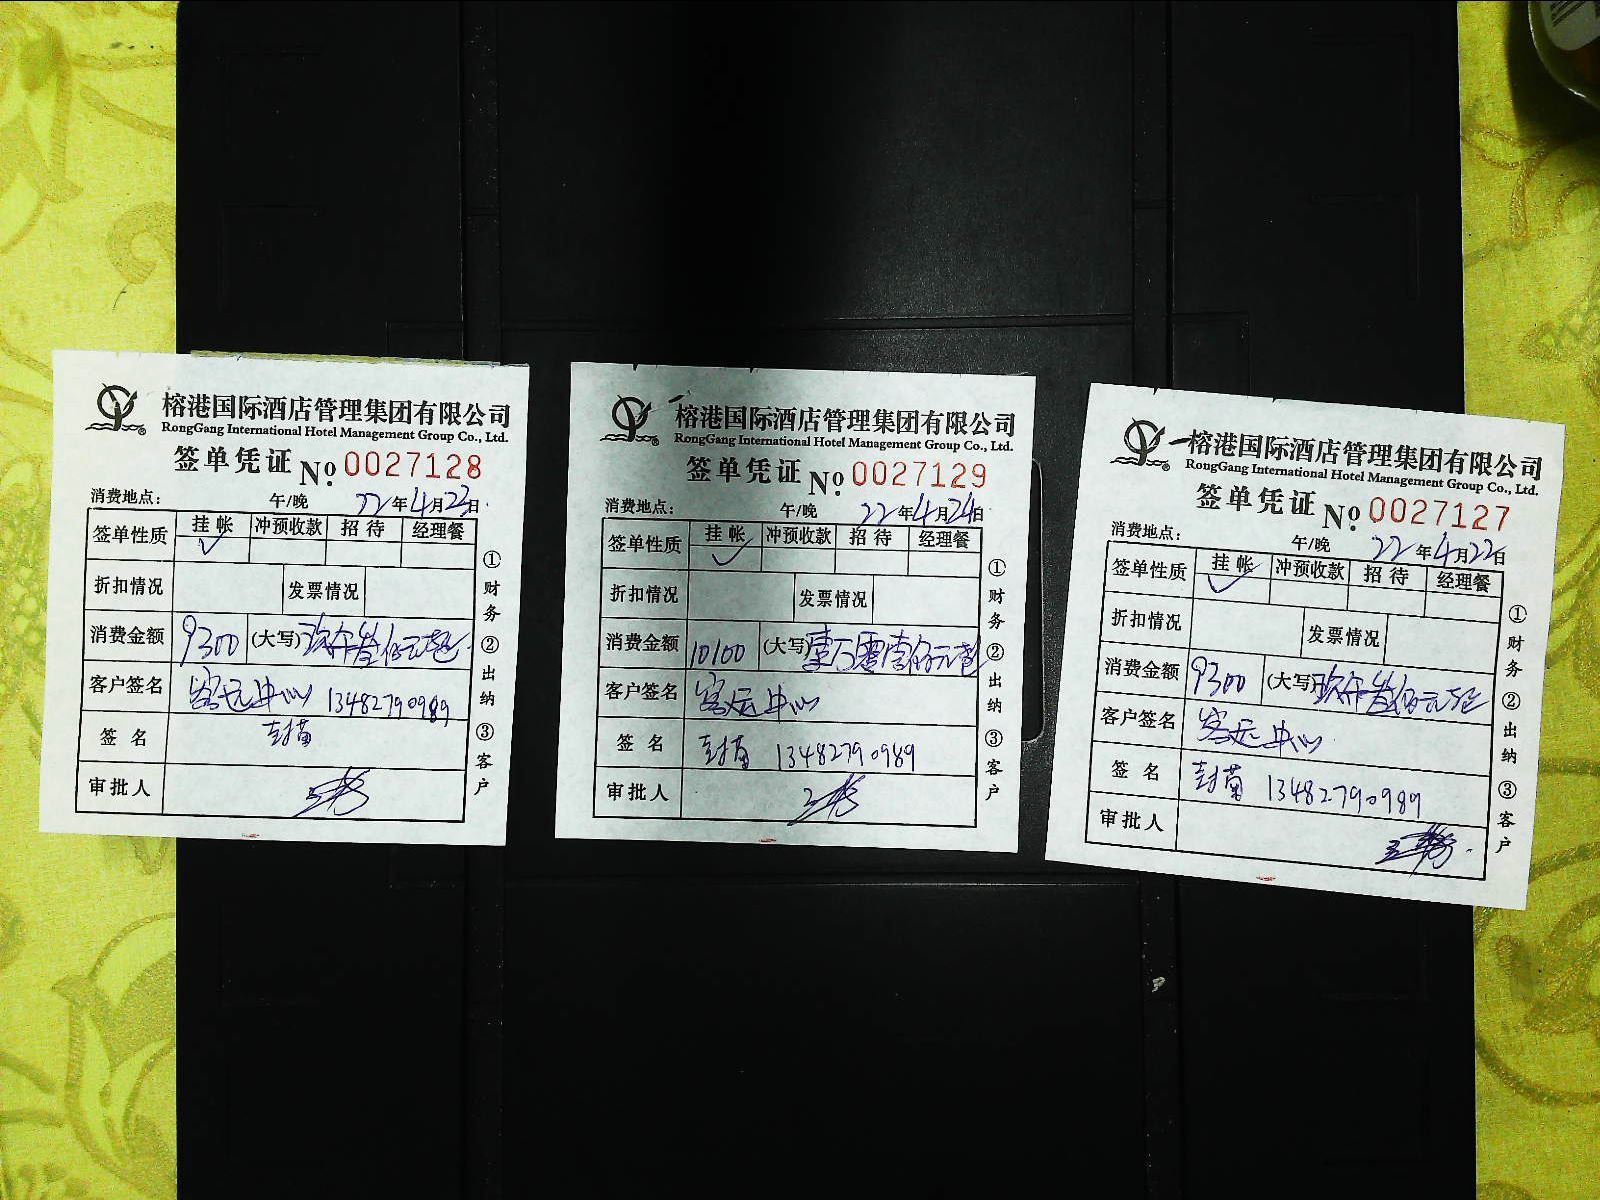 榕港国际酒店管理集团有限公司
RongGang International Hotel Management Group Co., Ltd.
签单凭证 No. 0027128
消费地点: 午/晚 22年4月23日
签单性质 挂帐 冲预收款 招待 经理餐
✓
折扣情况 发票情况
消费金额 9300 (大写) 玖仟叁佰元整
客户签名 客运中心 13482790989
签名 封菊
审批人
①财务②出纳③客户
榕港国际酒店管理集团有限公司
RongGang International Hotel Management Group Co., Ltd.
签单凭证 No. 0027129
消费地点: 午/晚 22年4月24日
签单性质 挂帐 冲预收款 招待 经理餐
✓
折扣情况 发票情况
消费金额 10100 (大写) 壹万零壹佰元整
客户签名 客运中心
签名 封菊 13482790989
审批人
①财务②出纳③客户
榕港国际酒店管理集团有限公司
RongGang International Hotel Management Group Co., Ltd.
签单凭证 No. 0027127
消费地点: 午/晚 22年4月22日
签单性质 挂帐 冲预收款 招待 经理餐
✓
折扣情况 发票情况
消费金额 9300 (大写) 玖仟叁佰元整
客户签名 客运中心
签名 封菊 13482790989
审批人
①财务②出纳③客户